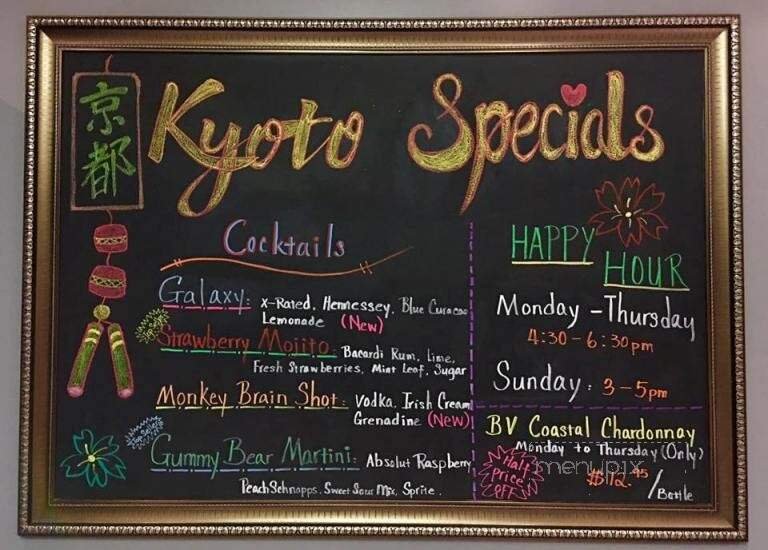 京都
Kyoto Specials
Cocktails
Galaxy: X-Rated, Hennessey, Blue Curacao
Lemonade (New)
Strawberry Mojito: Bacardi Rum, Lime,
Fresh Strawberries, Mint Leaf, Sugar
Monkey Brain Shot: Vodka, Irish Cream
Grenadine (New)
Gummy Bear Martini: Absolut Raspberry
Peach Schnapps, Sweet Sour Mix, Sprite.
HAPPY
HOUR
Monday - Thursday
4:30 - 6:30pm
Sunday: 3 - 5pm
BV Coastal Chardonnay
Monday to Thursday (Only)
Half
Price
OFF
$12.95 / Bottle
menupix